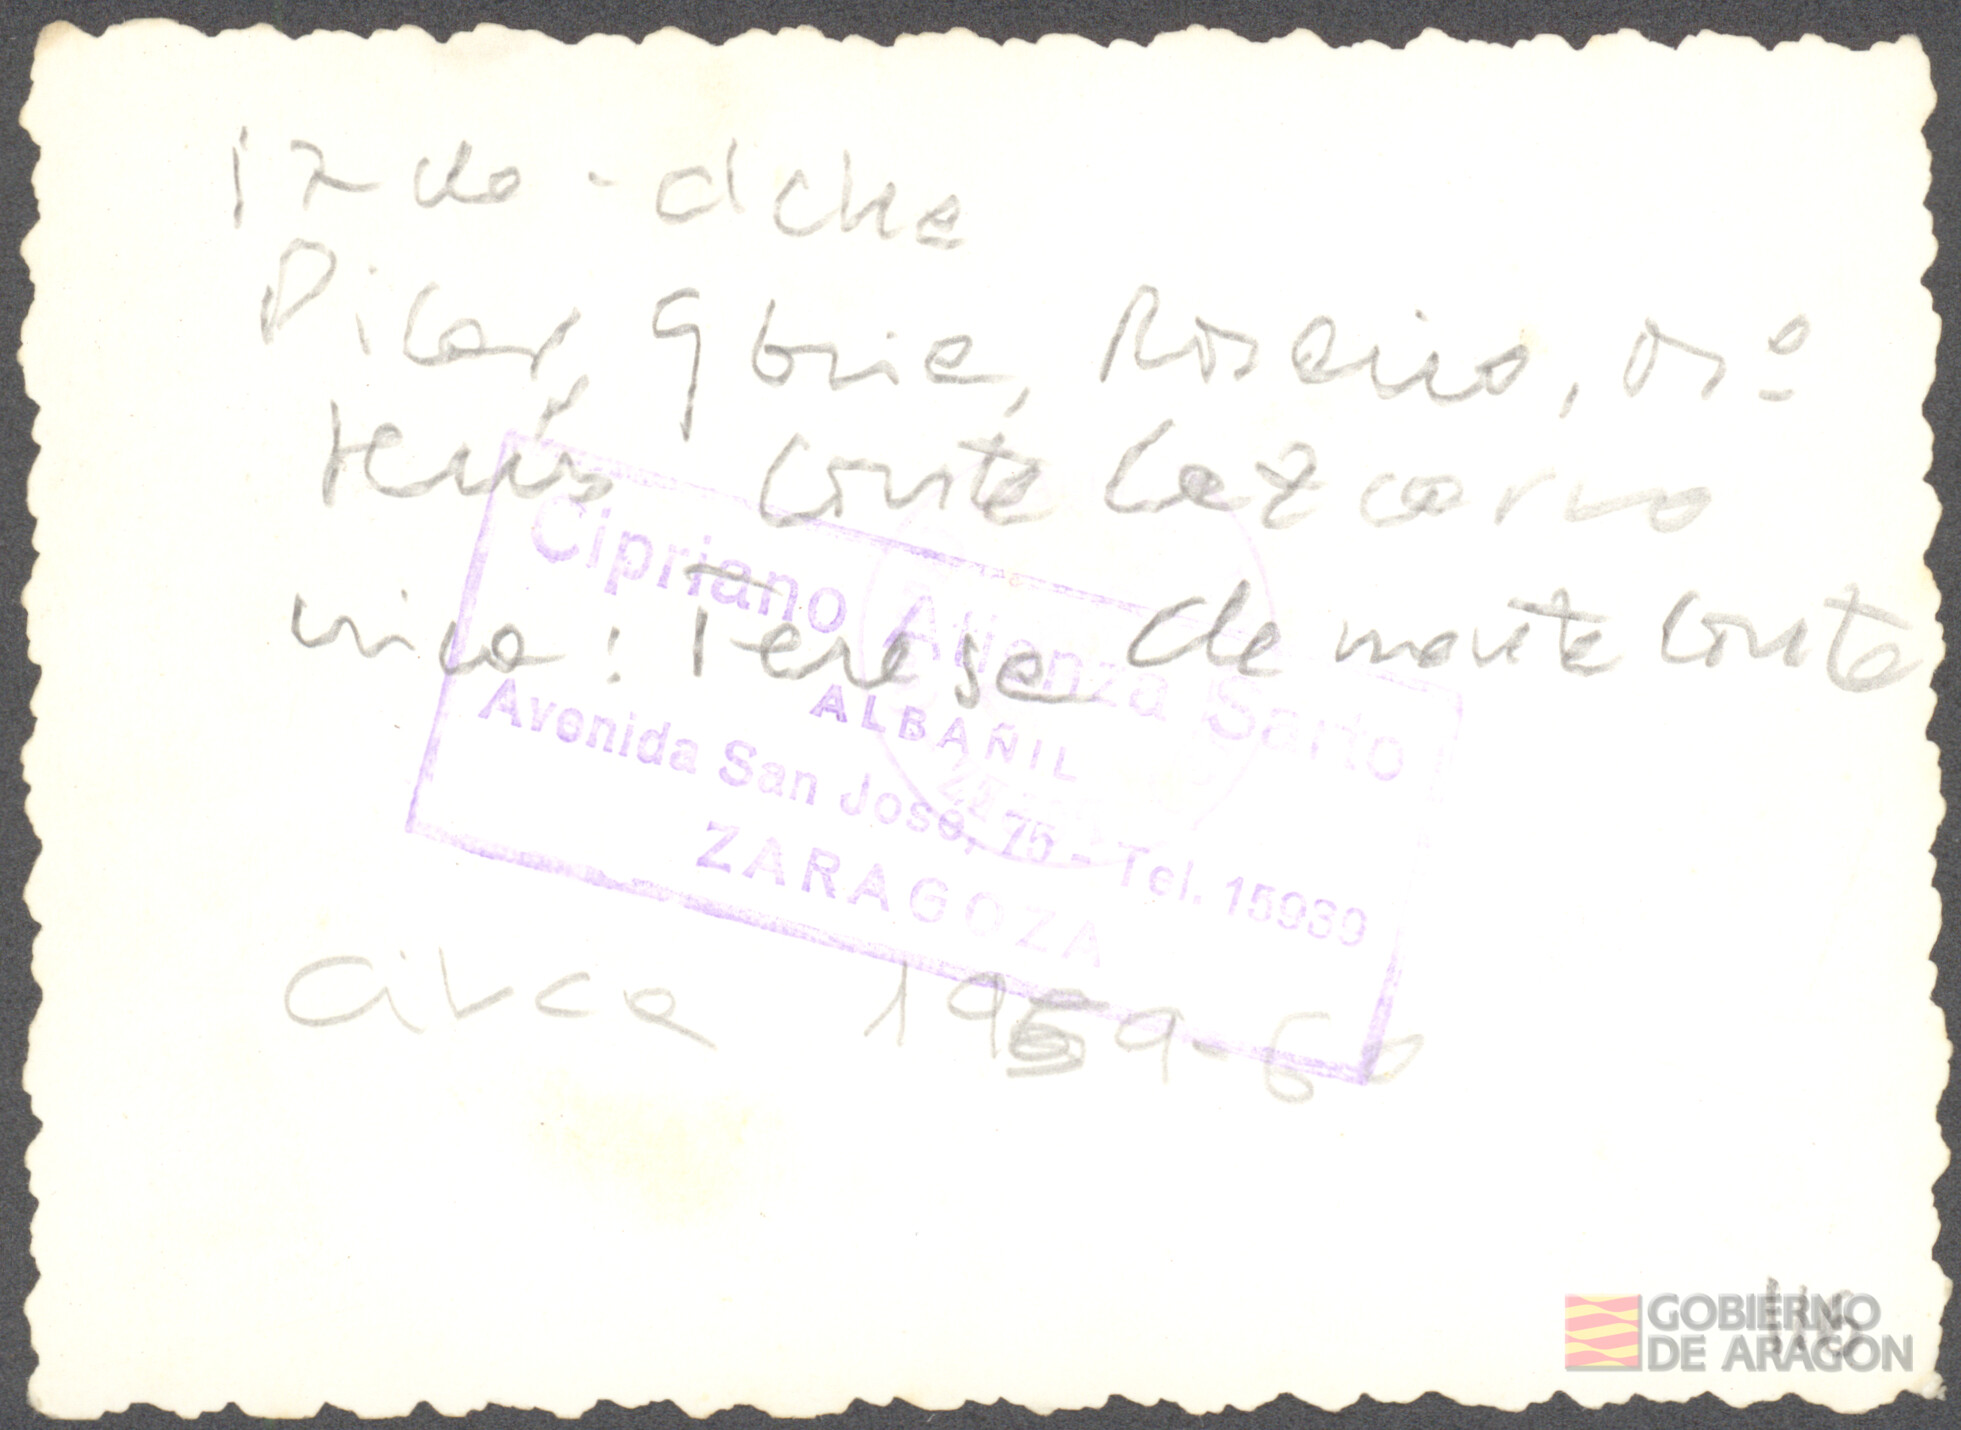 izda - dcha
Pilar, Gloria, Rosario, Mª
Jesús Conte Lazcorno
niña: Teresa Clemente Conte
Cipriano Atienza Sarto
ALBAÑIL
Avenida San José, 75 - Tel. 15939
ZARAGOZA
Circa 1959-60
GOBIERNO
DE ARAGON